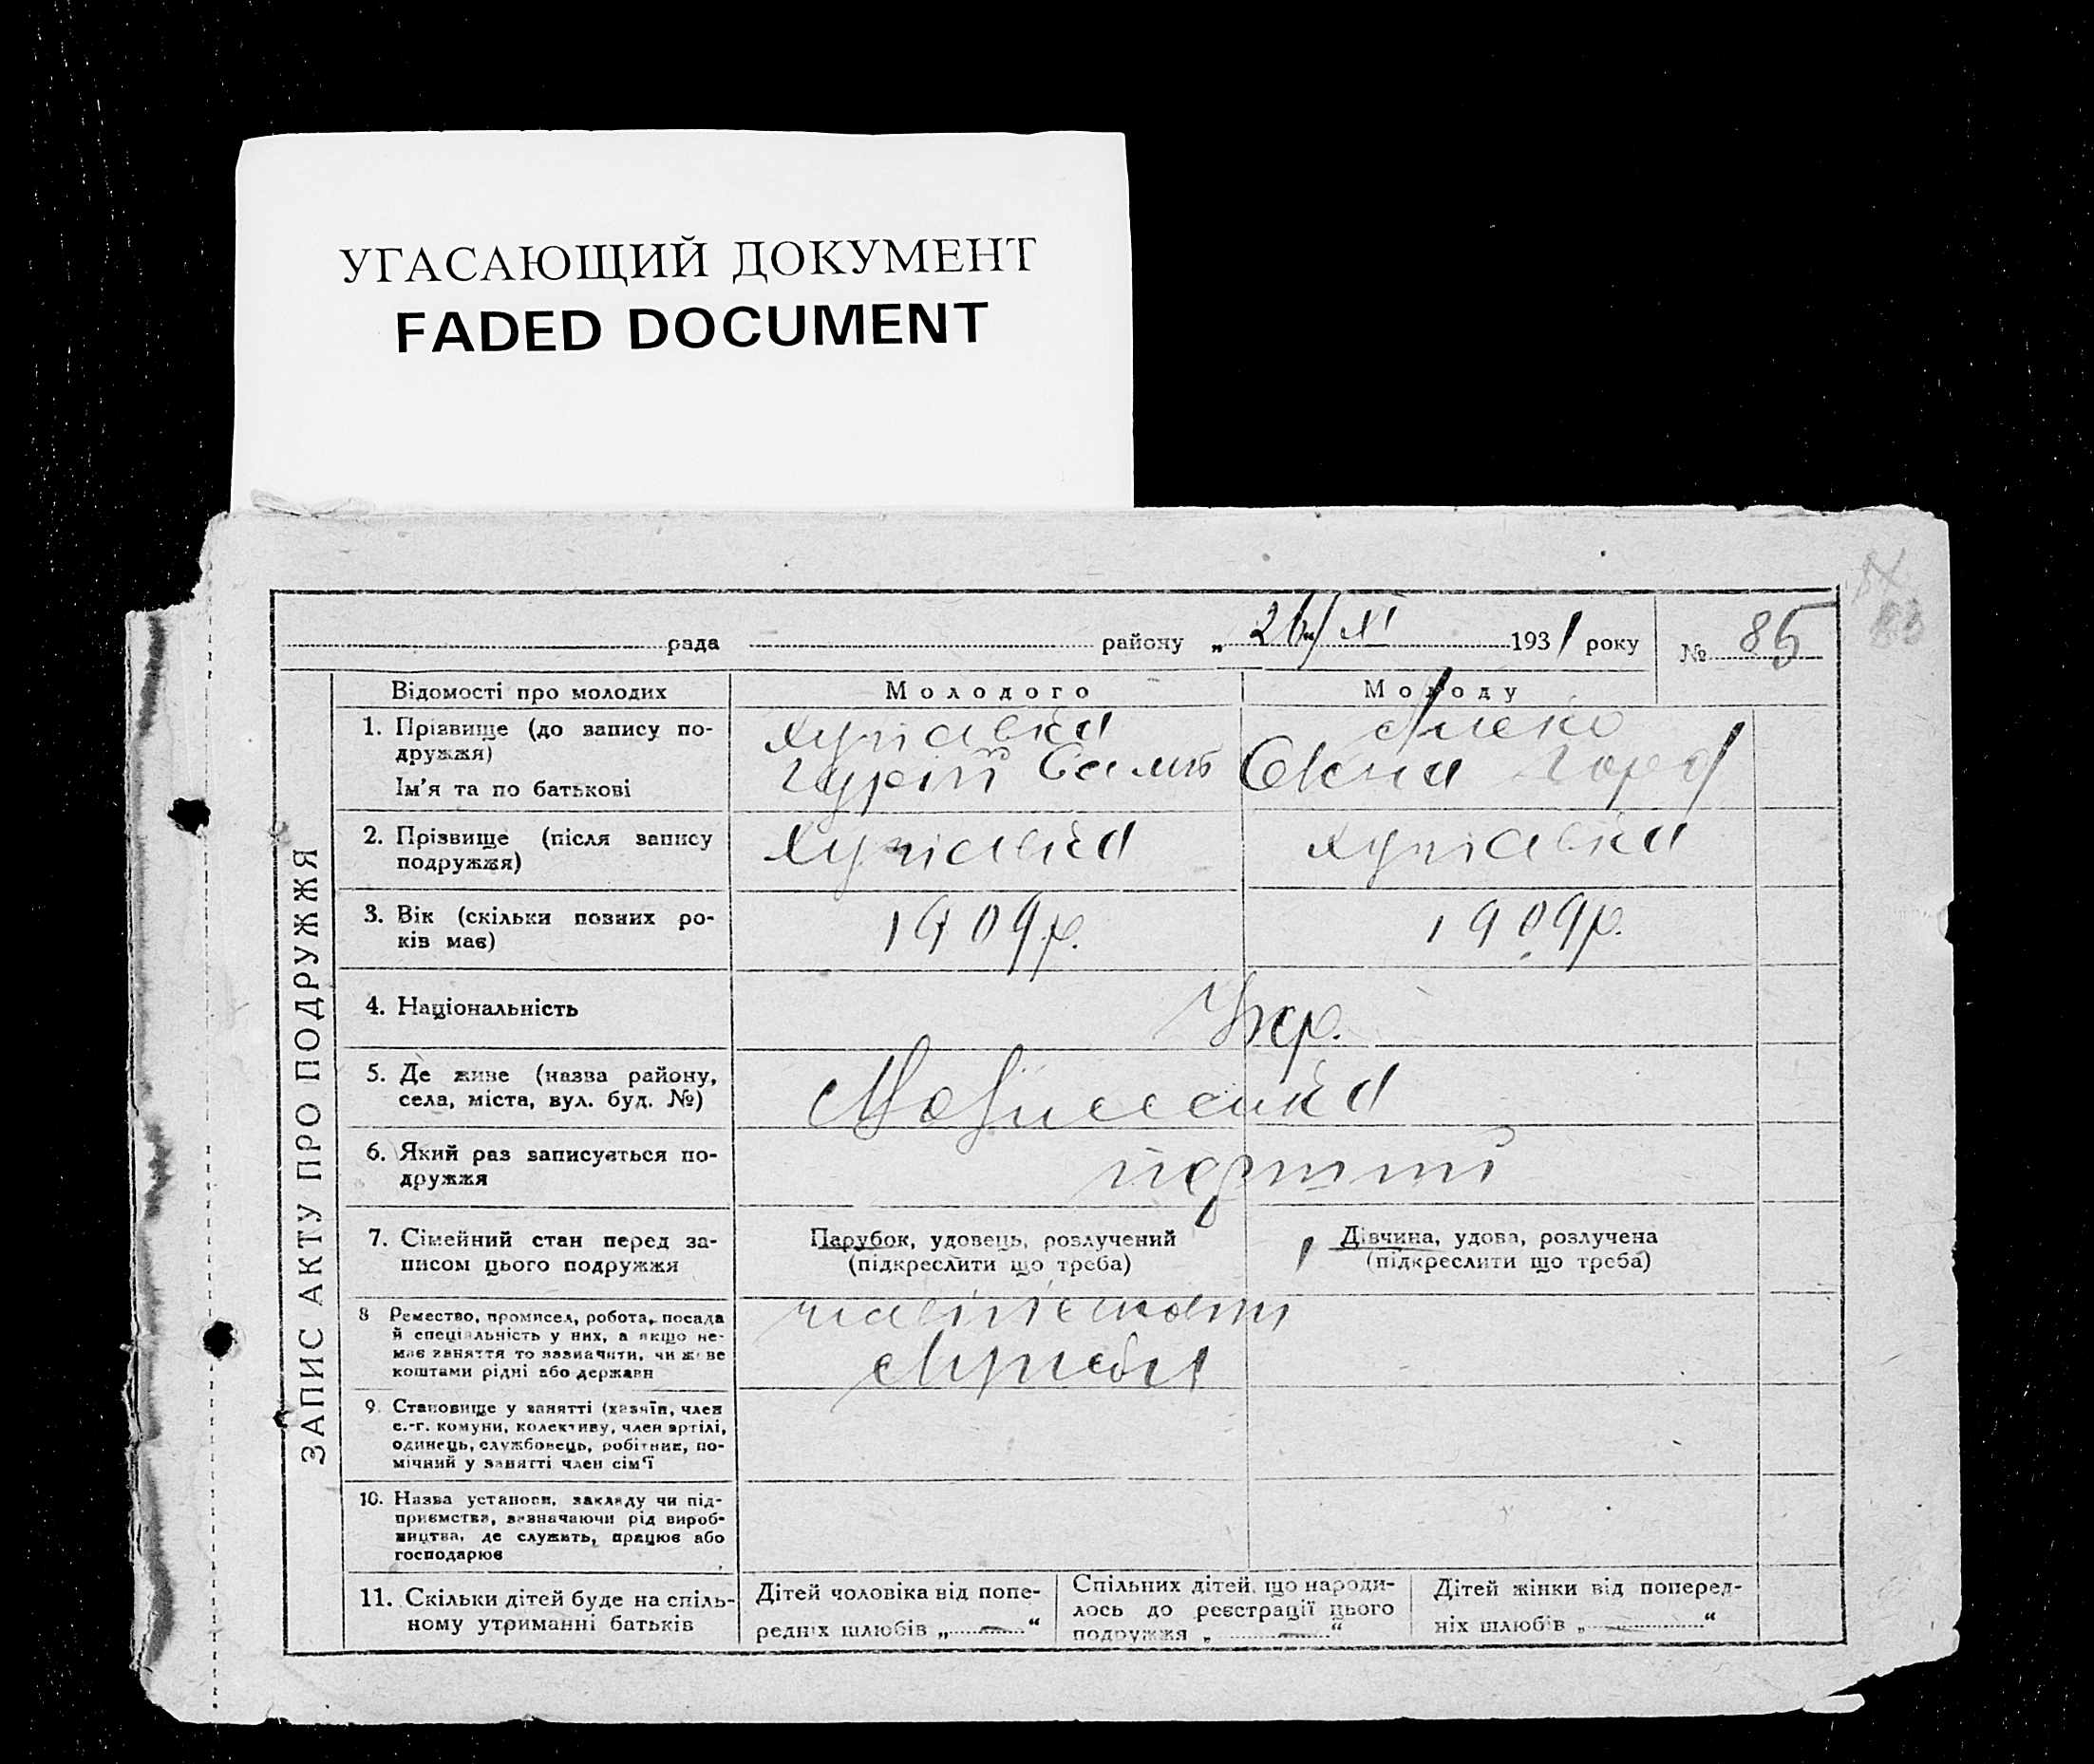 УГАСАЮЩИЙ ДОКУМЕНТ
FADED DOCUMENT
рада району „ 26/XI 1931 року № 85
ЗАПИС АКТУ ПРО ПОДРУЖЖЯ
Відомості про молодих Молодого Молоду
1. Прізвище (до запису по-
дружжя)
Ім'я та по батькові
2. Прізвище (після запису
подружжя)
3. Вік (скільки повних ро-
ків має)
1909р. 1909р.
4. Національність
Укр.
5. Де живе (назва району,
села, міста, вул. буд. №)
6. Який раз записується по-
дружжя
перший
7. Сімейний стан перед за-
писом цього подружжя
Парубок, удовець, розлучений
(підкреслити що треба)
Дівчина, удова, розлучена
(підкреслити що треба)
8 Ремество, промисел, робота, посада
й спеціальність у них, а якщо не-
має заняття то зазначити, чи живе
коштами рідні або держави
9. Становище у занятті (хазяїн, член
с.-г. комуни, колективу, член артілі,
одинець, службовець, робітник, по-
мічний у занятті член сім'ї
10. Назва установи, закладу чи під-
приємства, зазначаючи рід вироб-
ництва, де служить, працює або
господарює
11. Скільки дітей буде на спіль-
ному утриманні батьків
Дітей чоловіка від попе-
редніх шлюбів „ — “
Спільних дітей, що народи-
лось до реєстрації цього
подружжя „ — “
Дітей жінки від поперед-
ніх шлюбів „ — “